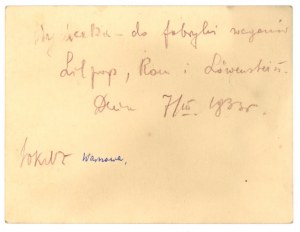 Wycieczka - do fabryki wagonów
Lilpop, Rau i Löwenstein.
Dnia 7/III. 1935 r.
Warszawa.